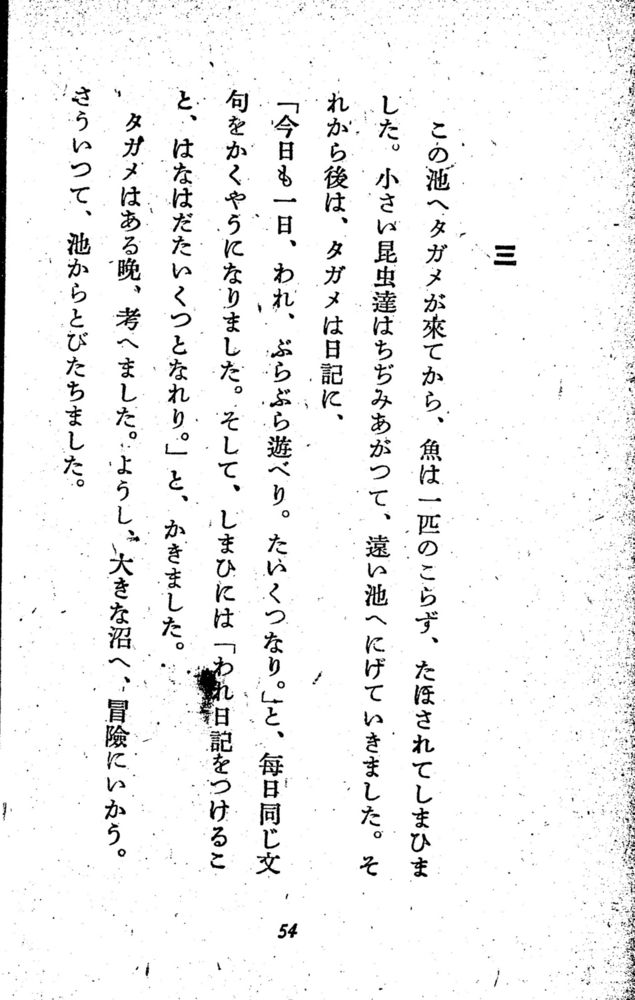 三
この池へタガメが來てから、魚は一匹のこらず、たほされてしまひま
した。小さい昆虫達はちぢみあがつて、遠い池へにげていきました。そ
れから後は、タガメは日記に、
「今日も一日、われ、ぶらぶら遊べり。たいくつなり。」と、毎日同じ文
句をかくやうになりました。そして、しまひには「われ日記をつけるこ
と、はなはだたいくつとなれり。」と、かきました。
タガメはある晩、考へました。ようし、大きな沼へ、冒險にいかう。
さういつて、池からとびたちました。
54